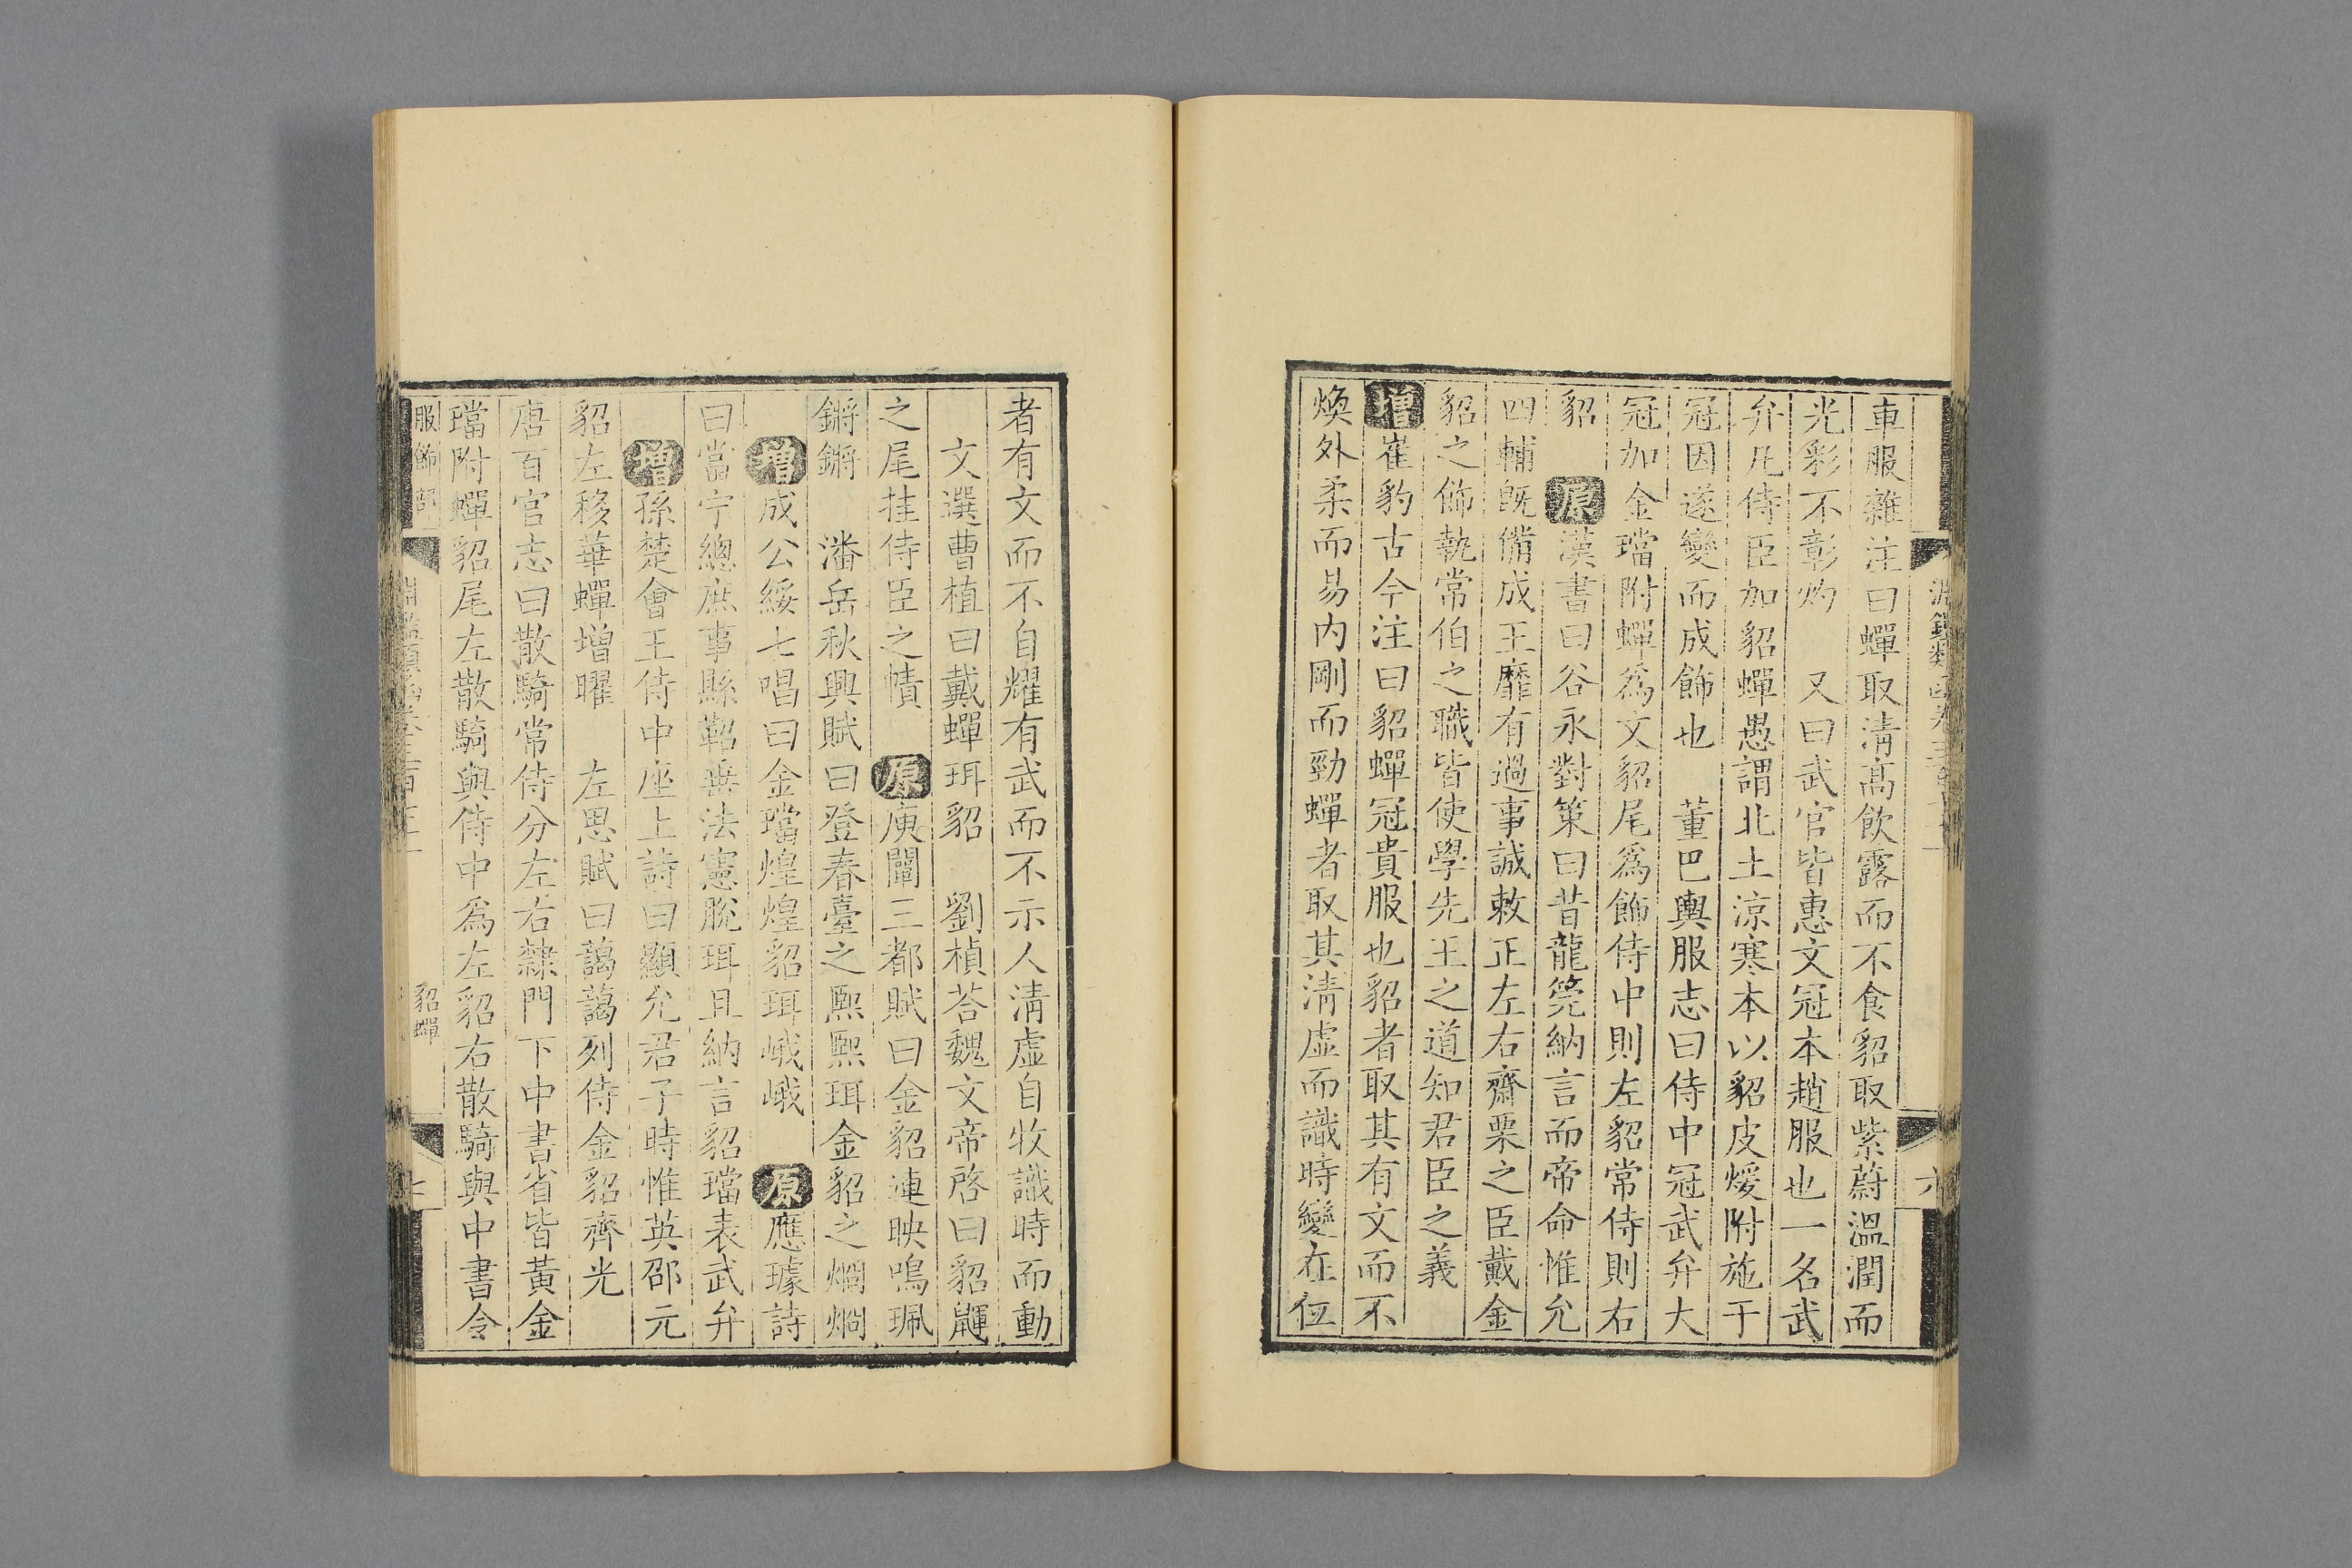 車服雜注曰蟬取淸髙飲露而不食貂取紫蔚溫潤而
光彩不彰灼　又曰武官皆惠文冠本趙服也一名武
弁凡侍臣加貂蟬愚謂北土涼寒本以貂皮煖附施于
冠因遂變而成飾也　董巴輿服志曰侍中冠武弁大
冠加金璫附蟬爲文貂尾爲飾侍中則左貂常侍則右
貂　原漢書曰谷永對策曰昔龍筦納言而帝命惟允
四輔旣備成王靡有過事誠敕正左右齋栗之臣戴金
貂之飾執常伯之職皆使學先王之道知君臣之義
增崔豹古今注曰貂蟬冠貴服也貂者取其有文而不
煥外柔而易内剛而勁蟬者取其淸虛而識時變在位
者有文而不自耀有武而不示人淸虛自牧識時而動
文選曹植曰戴蟬珥貂　劉楨荅魏文帝啓曰貂鼲
之尾挂侍臣之幘　原庾闡三都賦曰金貂連映鳴珮
鏘鏘　潘岳秋興賦曰登春臺之熙熙珥金貂之烱烱
增成公綏七唱曰金璫煌煌貂珥峨峨　原應璩詩
曰當宁總庶事縣鞀垂法憲脫珥且納言貂璫表武弁
增孫楚會王侍中座上詩曰顯允君子時惟英邵元
貂左移華蟬增曜　左思賦曰藹藹列侍金貂齊光
唐百官志曰散騎常侍分左右隸門下中書省皆黃金
璫附蟬貂尾左散騎與侍中爲左貂右散騎與中書令
服飾部
貂蟬